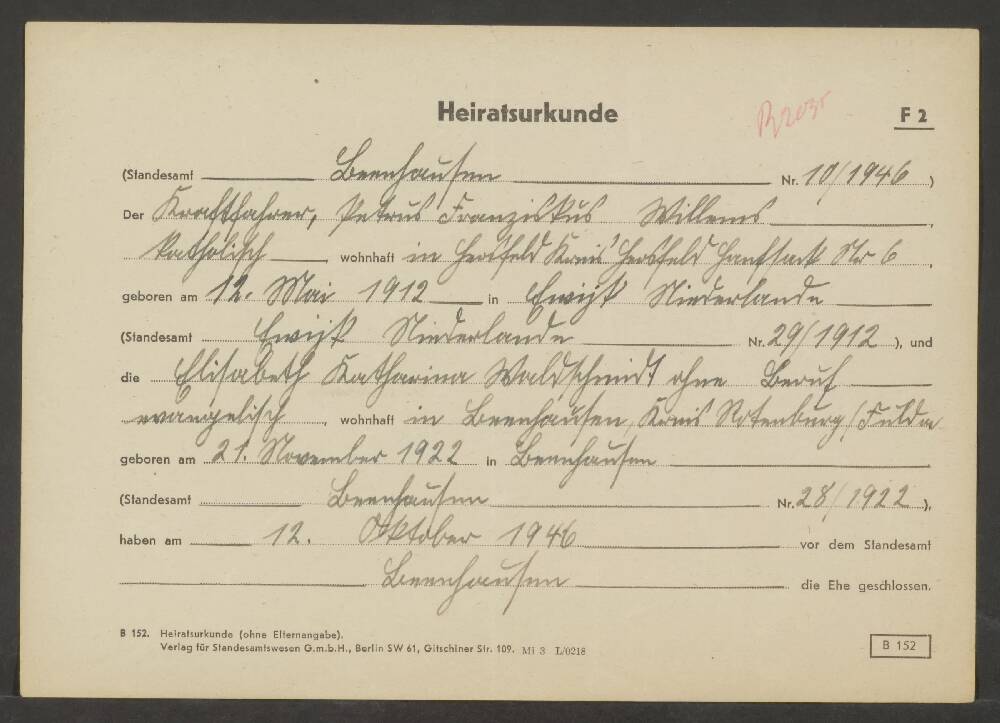 Heiratsurkunde
F 2
(Standesamt Beenhausen Nr. 10/1946 )
Der Kraftfahrer, Petrus Franziskus Willems ,
katholisch , wohnhaft in Kreis Hersfeld Nr 6 ,
geboren am 12. Mai 1912 in Ewijk Niederlande
(Standesamt Ewijk Niederlande Nr. 29/1912 ), und
die Elisabeth Katharina Waldschmidt ohne Beruf
evangelisch , wohnhaft in Beenhausen, Kreis Rotenburg/Fulda
geboren am 21. November 1922 in Beenhausen
(Standesamt Beenhausen Nr. 28/1922 ),
haben am 12. Oktober 1946 vor dem Standesamt
Beenhausen die Ehe geschlossen.
B 152. Heiratsurkunde (ohne Elternangabe).
Verlag für Standesamtswesen G.m.b.H., Berlin SW 61, Gitschiner Str. 109. Mi 3 L/0218
B 152